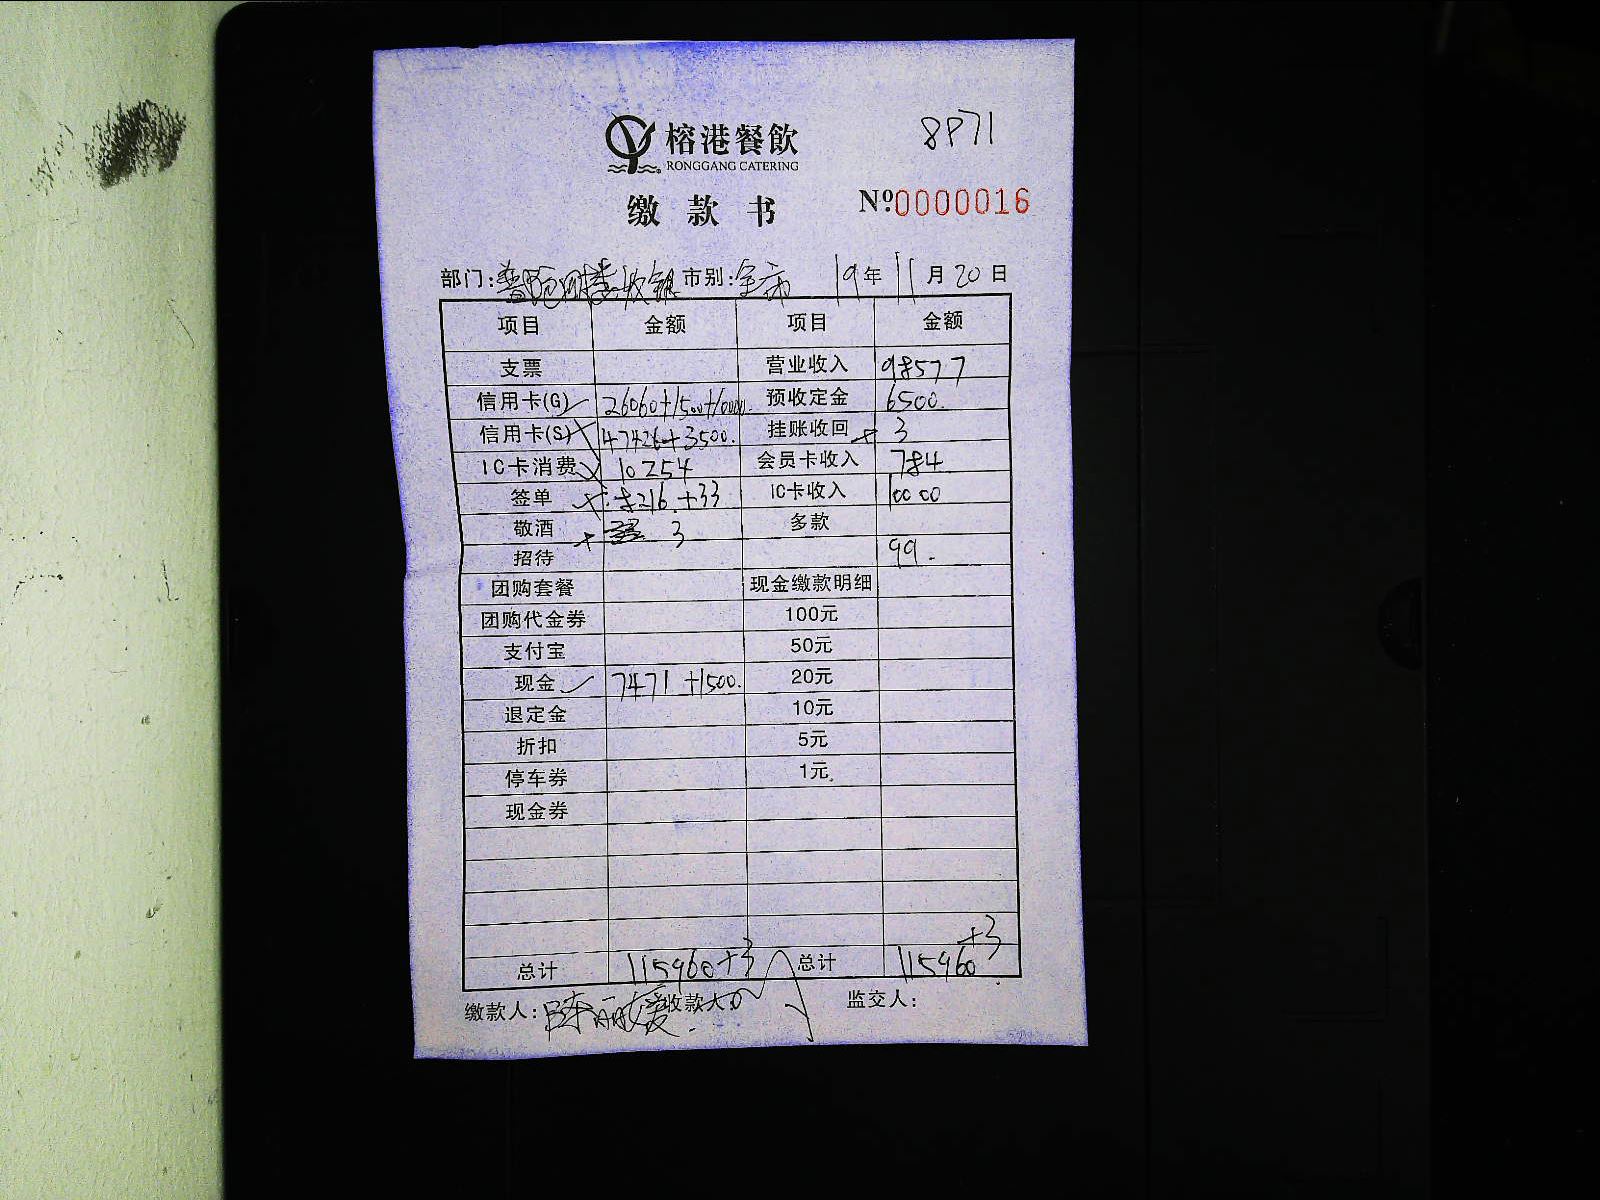 8971
榕港餐飲
RONGGANG CATERING
缴款书
Nº0000016
部门: 四楼收银 市别:全市 19年11月20日
项目 金额 项目 金额
支票 营业收入 98577
信用卡(G) 26060+1500+10000. 预收定金 6500.
信用卡(S) 47426+3500. 挂账收回 3
IC卡消费 10254 会员卡收入 784.
签单 8216.+33 IC卡收入 10000
敬酒 3 多款
招待 99.
团购套餐 现金缴款明细
团购代金券 100元
支付宝 50元
现金 7471+1500. 20元
退定金 10元
折扣 5元
停车券 1元
现金券
+3
总计 115960+3 总计 115960
缴款人:陈丽媛 收款人 监交人: